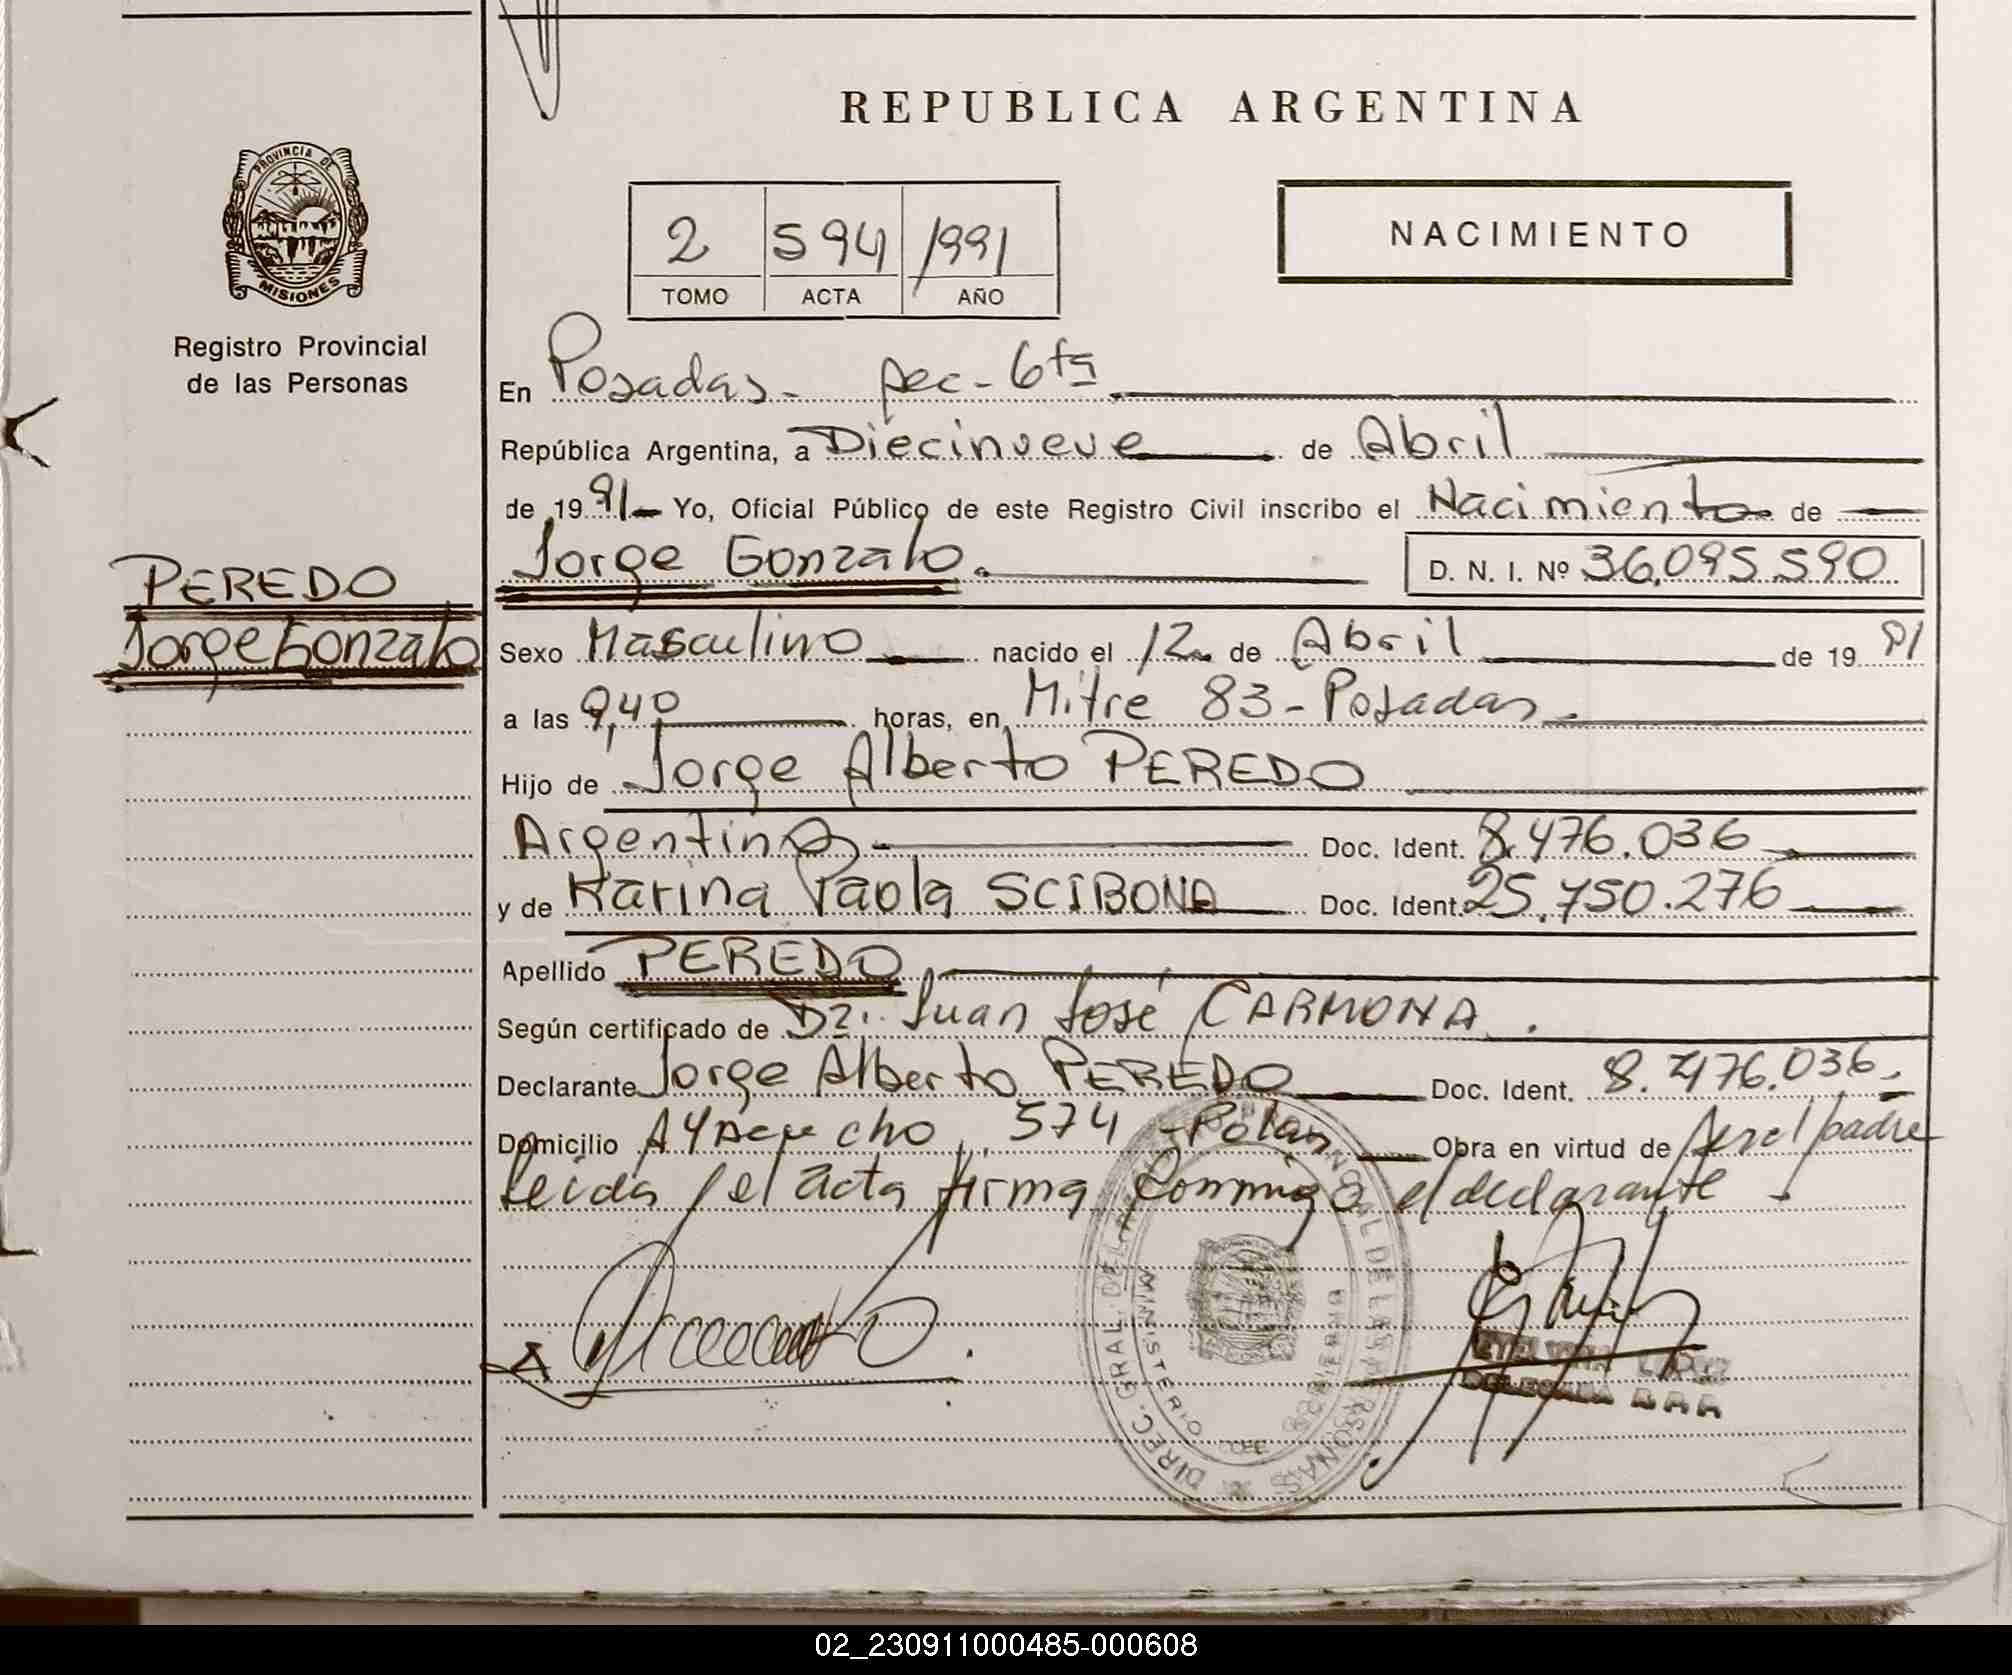 REPUBLICA ARGENTINA
PROVINCIA DE
MISIONES
Registro Provincial
de las Personas
2 594 1991
TOMO ACTA AÑO
NACIMIENTO
En Posadas - sec - 6ta
República Argentina, a Diecinueve de Abril
de 19 91 Yo, Oficial Público de este Registro Civil inscribo el Nacimiento de
PEREDO
Jorge Gonzalo
Jorge Gonzalo. D. N. I. Nº 36.095.590
Sexo Masculino nacido el 12 de Abril de 19 91
a las 9,40 horas, en Mitre 83 - Posadas.
Hijo de Jorge Alberto PEREDO
Argentina Doc. Ident. 8.476.036
y de Karina Paola SCIBONA Doc. Ident. 25.750.276
Apellido PEREDO
Según certificado de Dr. Juan José CARMONA.
Declarante Jorge Alberto PEREDO Doc. Ident. 8.476.036
Domicilio Ayacucho 574 Obra en virtud de ser el padre
Leida el acta firma conmigo el declarante
DIREC. GRAL. DEL REGISTRO PROVINCIAL DE LAS PERSONAS
MINISTERIO DE GOBIERNO
02_230911000485-000608